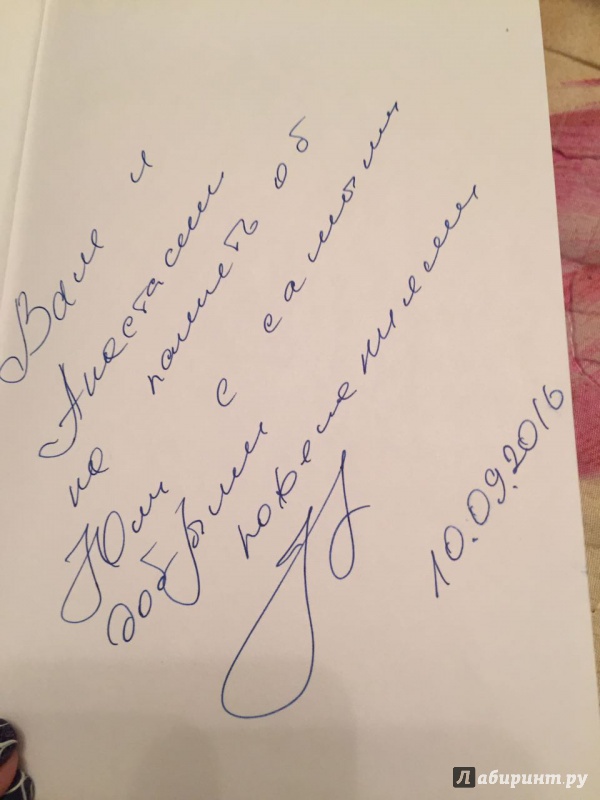 Вале и
Анастасии
на память об
Юли с самыми
добрыми
пожеланиями
10.09.2016
Лабиринт.ру